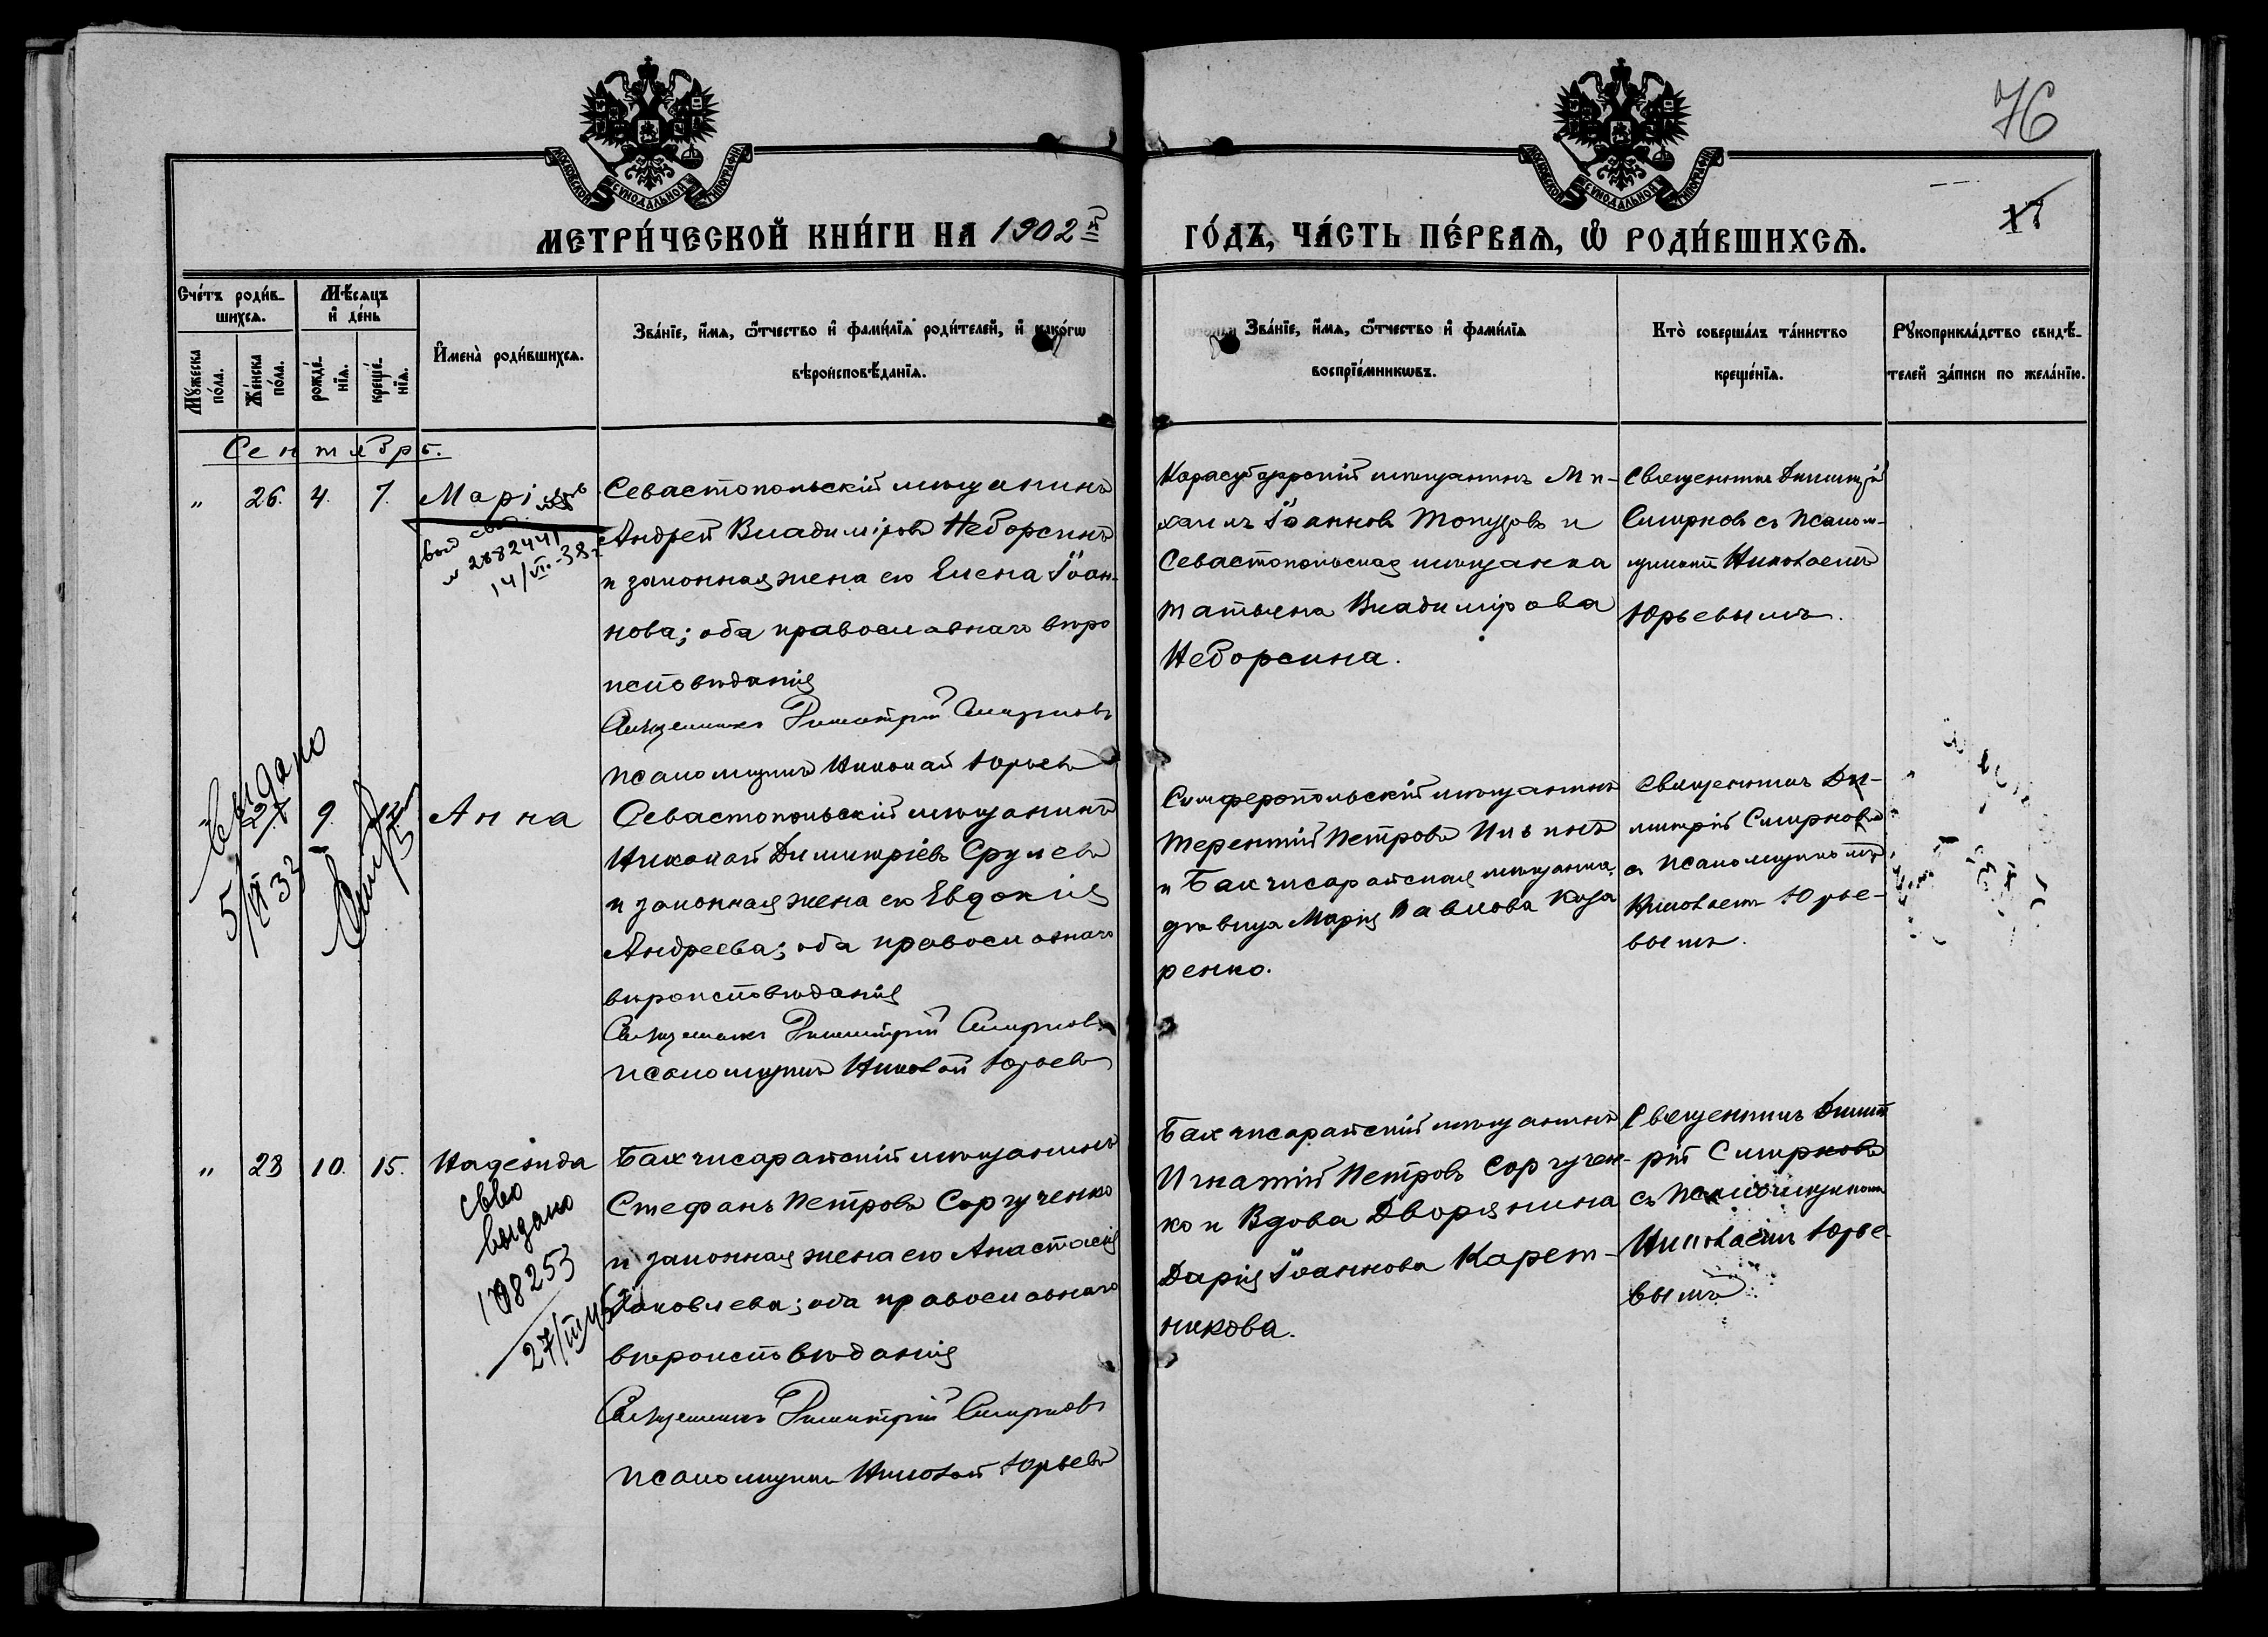 76
17
МОСКОВСКОЙ СѴНОДАЛЬНОЙ ТИПОГРАФІИ
МОСКОВСКОЙ СѴНОДАЛЬНОЙ ТИПОГРАФІИ
МЕТРИ́ЧЕСКОЙ КНИ́ГИ НА 1902 й
ГО́ДЪ, ЧА́СТЬ ПЕ́РВАѦ, Ѡ҆ РОДИ́ВШИХСѦ.
Сче́тъ роди́в-
шихсѧ.
Мѣ́сѧцъ
и҆ де́нь
Мꙋжеска по́ла.
Же́нска по́ла.
рожде́-
нїѧ.
креще́-
нїѧ.
И҆мена̀ роди́вшихсѧ.
Зва́нїе, и҆́мѧ, ѻ҆́тчество и҆ фами́лїѧ роди́телей, и҆ како́гѡ
вѣроисповѣ́данїѧ.
Зва́нїе, и҆́мѧ, ѻ҆́тчество и҆ фами́лїѧ
воспрїе́мникѡвъ.
Кто̀ соверша́лъ та́инство
креще́нїѧ.
Рꙋкоприкла́дство свидѣ́-
телей за́писи по жела́нїю.
Сентябрь.
" 26. 4. 7. Марі
выд св
№ 2882441
14/VI.-38 г
Севастопольскій мѣщанинъ
Андрей Владиміровъ Неборсинъ
и законная жена его Елена Іоан-
нова; оба православнаго вѣро
исповѣданія
Священникъ Димитрій Смирновъ
Псаломщикъ Николай Юрьевъ
Карасубазарскій мѣщанинъ Ми-
хаилъ Іоанновъ Топузовъ и
Севастопольская мѣщанка
Татьяна Владимірова
Неборсина.
Священникъ Димитрій
Смирновъ съ Псалом-
щикомъ Николаемъ
Юрьевымъ.
" 27 9. Анна
Выдано
5/VI 33
Севастопольскій мѣщанинъ
Николай Димитріевъ Срулевъ
и законная жена его Евдокія
Андреева; оба православнаго
вѣроисповѣданія
Священникъ Димитрій Смирновъ
Псаломщикъ Николай Юрьевъ
Симферопольскій мѣщанинъ
Терентій Петровъ Ильинъ
и Бахчисарайская мѣщанка,
дѣвица Марія Павлова Каза
ренко.
Священникъ Ди-
митрій Смирновъ
съ Псаломщикомъ
Николаемъ Юрье-
вымъ.
" 28 10. 15. Надежда
св-во
выдано
108253
27/III 45
Бахчисарайскій мѣщанинъ
Стефанъ Петровъ Соргученко
и законная жена его Анастасія
Яковлева; оба православнаго
вѣроисповѣданія
Священникъ Димитрій Смирновъ
Псаломщикъ Николай Юрьевъ
Бахчисарайскій мѣщанинъ
Игнатій Петровъ Соргучен-
ко и Вдова Дворянина
Дарія Іоаннова Карет-
никова.
Священникъ Димит
рій Смирновъ
съ Псаломщикомъ
Николаемъ Юрье-
вымъ